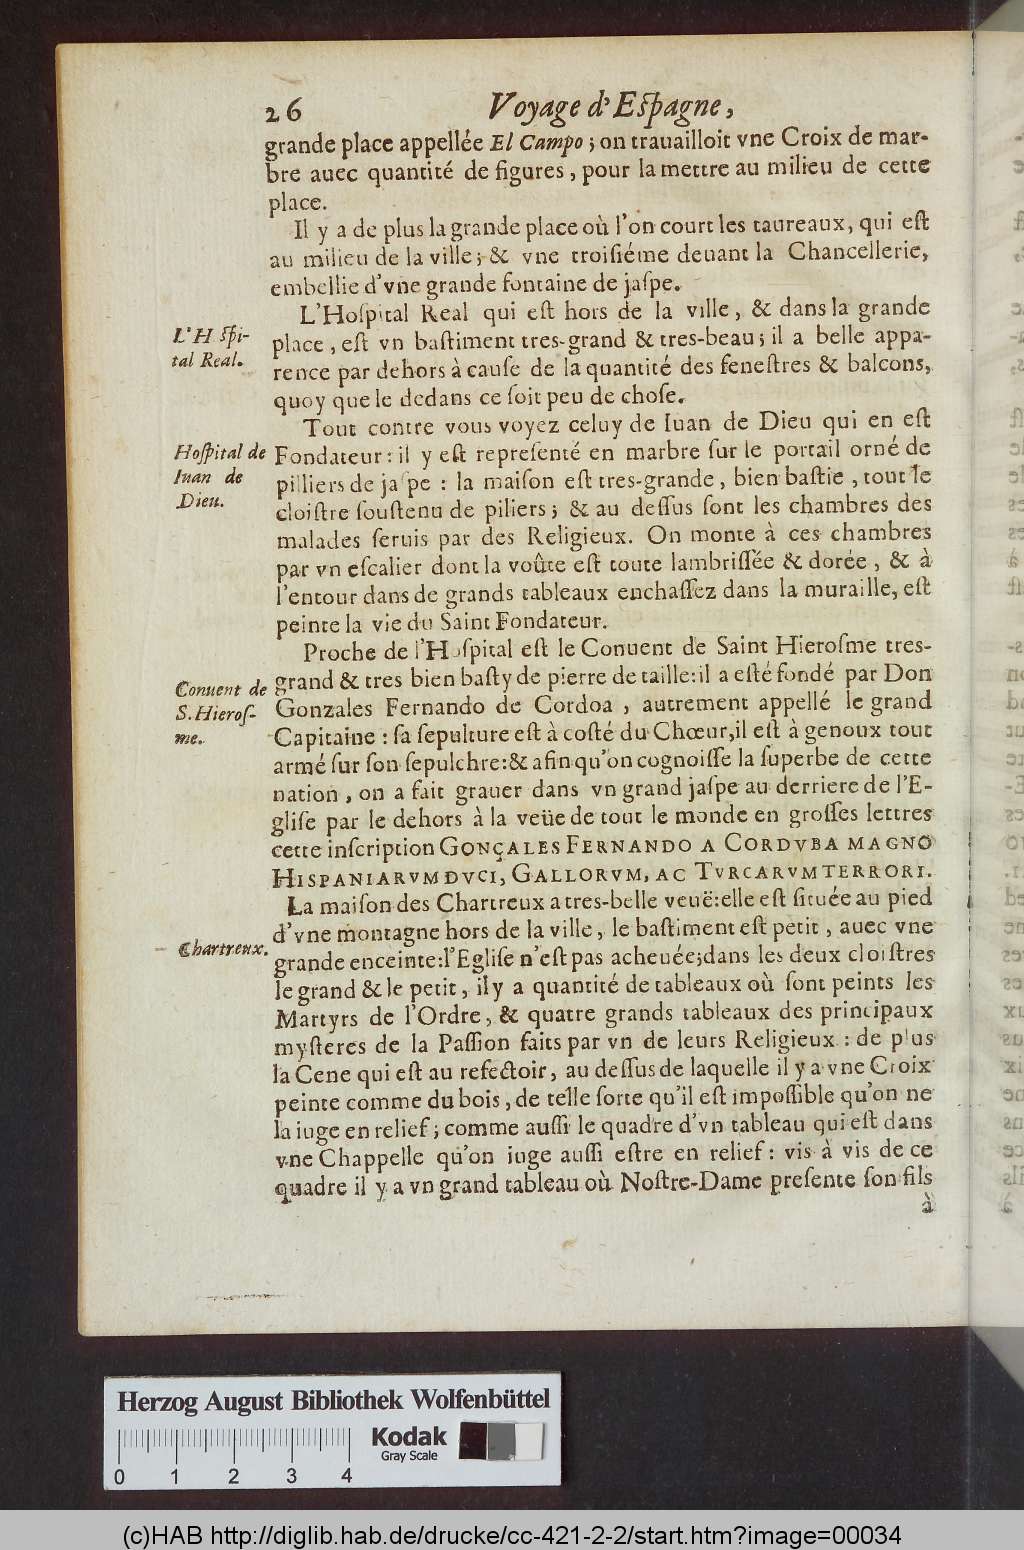 26 Voyage d'Eſpagne,
grande place appellée El Campo ; on trauailloit vne Croix de mar-
bre auec quantité de figures, pour la mettre au milieu de cette
place.
Il y a de plus la grande place où l'on court les taureaux, qui eſt
au milieu de la ville ; & vne troiſiéme deuant la Chancellerie,
embellie d'vne grande fontaine de jaſpe.
L'Hoſpital Real qui eſt hors de la ville, & dans la grande
L'H ſpi-
tal Real.
place, eſt vn baſtiment tres-grand & tres-beau ; il a belle appa-
rence par dehors à cauſe de la quantité des feneſtres & balcons,
quoy que le dedans ce ſoit peu de choſe.
Tout contre vous voyez celuy de Iuan de Dieu qui en eſt
Hoſpital de
Iuan de
Dieu.
Fondateur : il y eſt repreſenté en marbre ſur le portail orné de
pilliers de jaſpe : la maiſon eſt tres-grande, bien baſtie, tout le
cloiſtre ſouſtenu de piliers ; & au deſſus ſont les chambres des
malades ſeruis par des Religieux. On monte à ces chambres
par vn eſcalier dont la voûte eſt toute lambriſſée & dorée, & à
l'entour dans de grands tableaux enchaſſez dans la muraille, eſt
peinte la vie du Saint Fondateur.
Proche de l'Hoſpital eſt le Conuent de Saint Hieroſme tres-
Conuent de
S. Hieroſ-
me.
grand & tres bien baſty de pierre de taille : il a eſté fondé par Don
Gonzales Fernando de Cordoa, autrement appellé le grand
Capitaine : ſa ſepulture eſt à coſté du Chœur, il eſt à genoux tout
armé ſur ſon ſepulchre : & afin qu'on cognoiſſe la ſuperbe de cette
nation, on a fait grauer dans vn grand jaſpe au derriere de l'E-
gliſe par le dehors à la veüe de tout le monde en groſſes lettres
cette inſcription GONÇALES FERNANDO A CORDVBA MAGNO
HISPANIARVM DVCI, GALLORVM, AC TVRCARVM TERRORI.
La maiſon des Chartreux a tres-belle veuë : elle eſt ſituée au pied
Chartreux.
d'vne montagne hors de la ville, le baſtiment eſt petit, auec vne
grande enceinte : l'Egliſe n'eſt pas acheuée ; dans les deux cloiſtres
le grand & le petit, il y a quantité de tableaux où ſont peints les
Martyrs de l'Ordre, & quatre grands tableaux des principaux
myſteres de la Paſſion faits par vn de leurs Religieux : de plus
la Cene qui eſt au refectoir, au deſſus de laquelle il y a vne Croix
peinte comme du bois, de telle ſorte qu'il eſt impoſſible qu'on ne
la iuge en relief ; comme auſſi le quadre d'vn tableau qui eſt dans
vne Chappelle qu'on iuge auſſi eſtre en relief : vis à vis de ce
quadre il y a vn grand tableau où Noſtre-Dame preſente ſon fils
à
Herzog August Bibliothek Wolfenbüttel
Kodak
Gray Scale
0 1 2 3 4
(c)HAB http://diglib.hab.de/drucke/cc-421-2-2/start.htm?image=00034